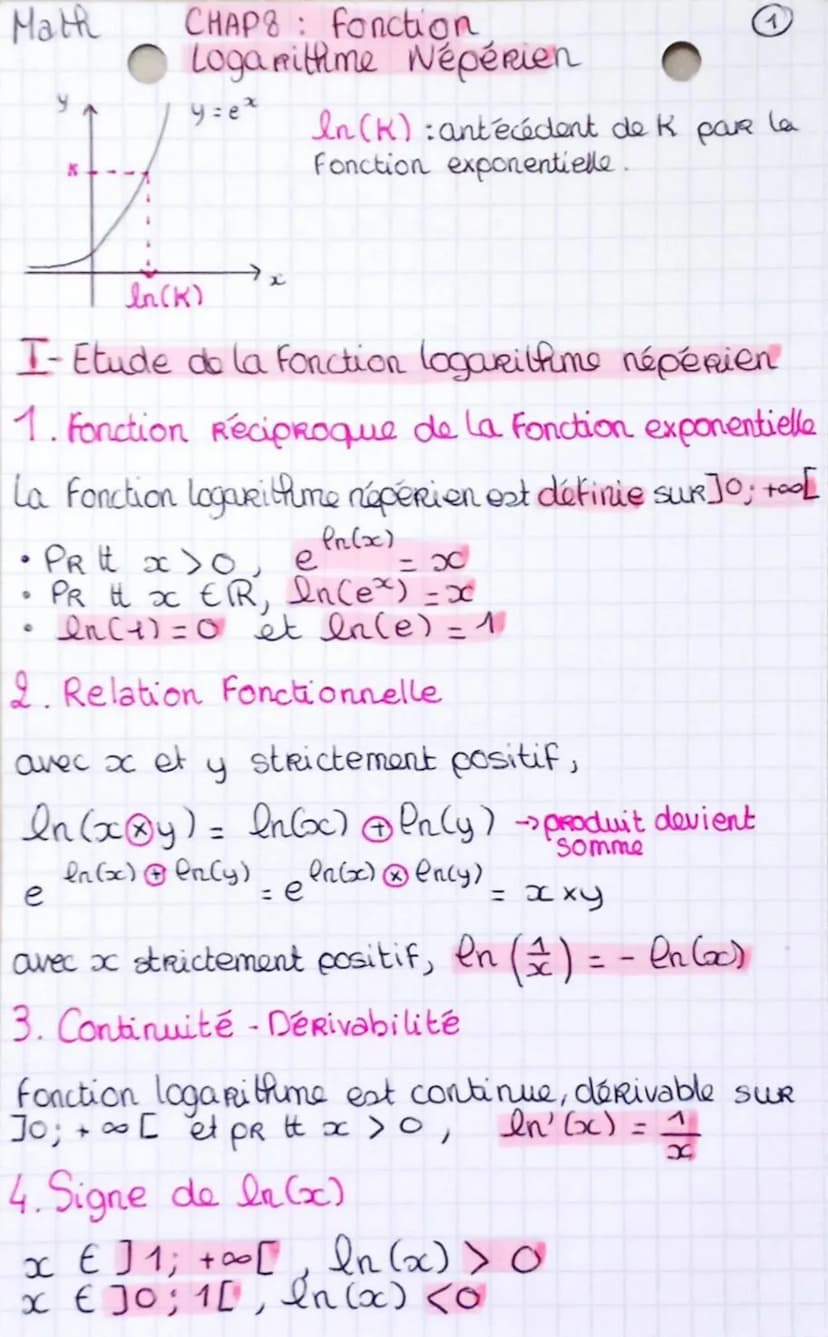 Math
CHAP8 : Fonction
Logarithme Népérien
1
y
y = eˣ
K
x
ln(K)
ln(K) : antécédent de K par la
Fonction exponentielle.
I- Etude de la Fonction logarithme népérien
1. Fonction Réciproque de la Fonction exponentielle
La Fonction logarithme népérien est définie sur ]0; +∞[
• PR tt x > 0, e^ln(x) = x
• PR tt x ∈ ℝ, ln(eˣ) = x
• ln(1) = 0 et ln(e) = 1
2. Relation Fonctionnelle
avec x et y strictement positif,
ln(x⊗y) = ln(x) ⊕ ln(y) → produit devient
somme
e^ln(x) ⊕ ln(y) = e^ln(x) ⊗ ln(y) = x × y
avec x strictement positif, ln(1/x) = - ln(x)
3. Continuité - Dérivabilité
Fonction logarithme est continue, dérivable sur
]0; +∞[ et pR tt x > 0, ln'(x) = 1/x
4. Signe de ln(x)
x ∈ ]1; +∞[, ln(x) > 0
x ∈ ]0; 1[, ln(x) < 0